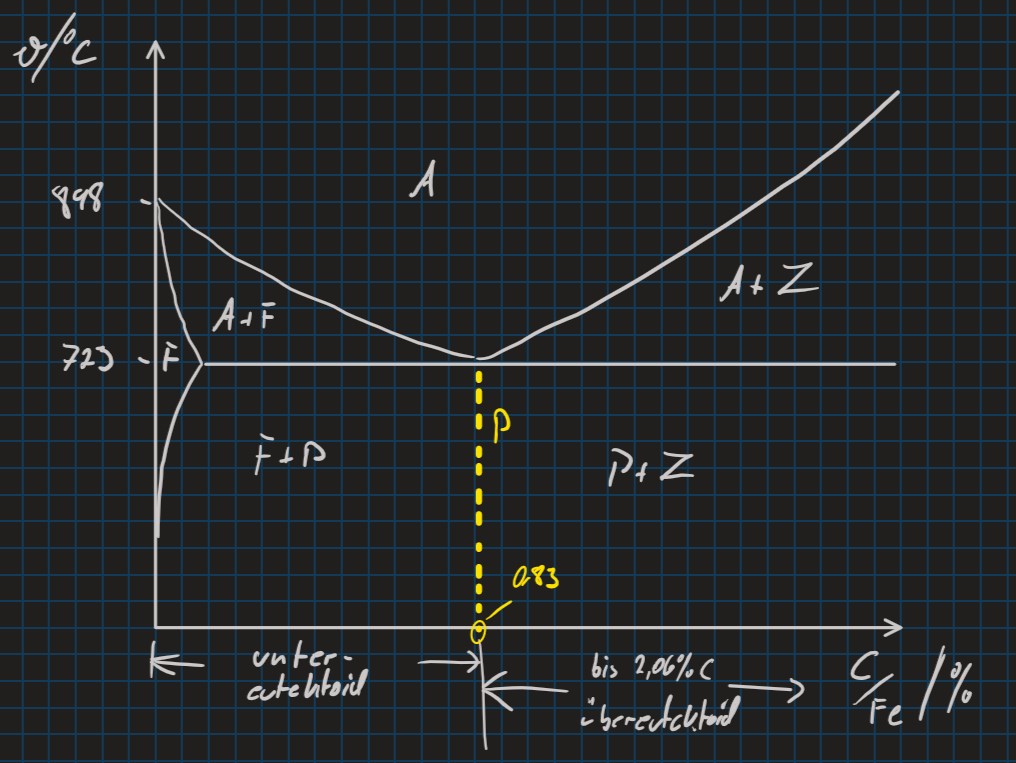 ϑ/°C
A
898
A+Z
A+F
723
F
P
F+P
P+Z
0,83
unter-
eutektoid
bis 2,06% C
übereutektoid
C/Fe / %